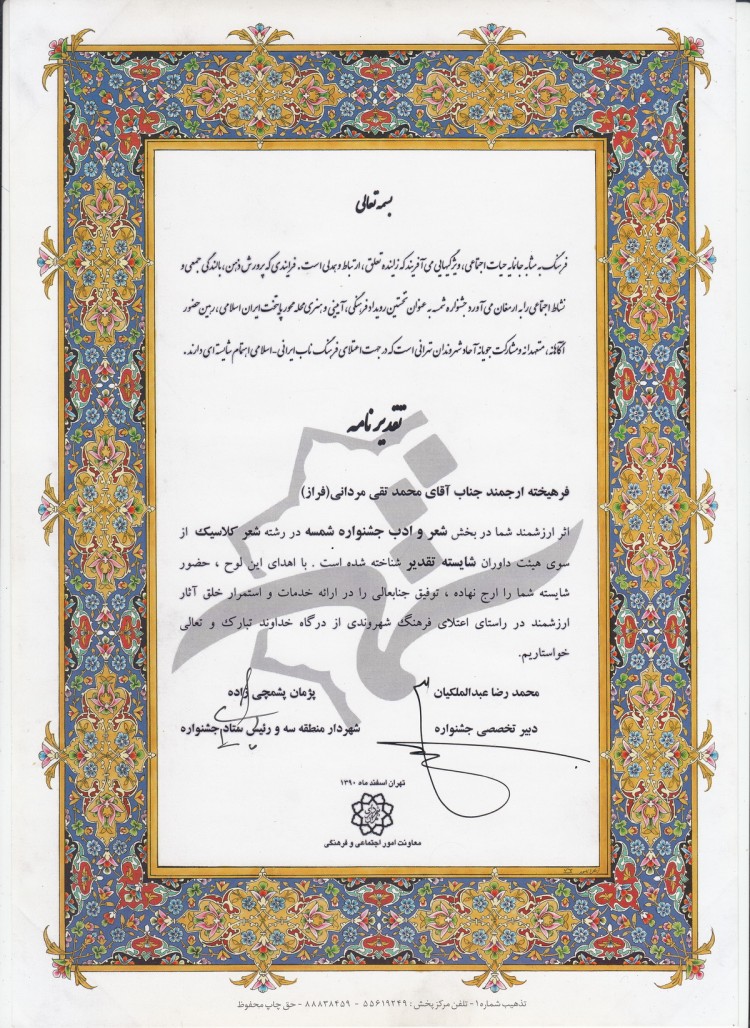 بسمه تعالی
فرهنگ به مثابه جانمایه حیات اجتماعی، ویژگیهایی می آفریند که زاینده تعلق، ارتباط و همدلی است. فرایندی که پرورش ذهن، بالندگی جمعی و
نشاط اجتماعی را به ارمغان می آورد جشنواره شمسه به عنوان نخستین رویداد فرهنگی، آیینی و هنری محله محور پایتخت ایران اسلامی، رهین حضور
آگاهانه، متعهدانه و مشارکت جویانه آحاد شهروندان تهرانی است که در جهت اعتلای فرهنگ ناب ایرانی-اسلامی اهتمام شایسته ای دارند.
تقدیر نامه
فرهیخته ارجمند جناب آقای محمد تقی مردانی(فراز)
اثر ارزشمند شما در بخش شعر و ادب جشنواره شمسه در رشته شعر کلاسیک از
سوی هیئت داوران شایسته تقدیر شناخته شده است . با اهدای این لوح ، حضور
شایسته شما را ارج نهاده ، توفیق جنابعالی را در ارائه خدمات و استمرار خلق آثار
ارزشمند در راستای اعتلای فرهنگ شهروندی از درگاه خداوند تبارک و تعالی
خواستاریم.
محمد رضا عبدالملکیان پژمان پشمچی زاده
دبیر تخصصی جشنواره شهردار منطقه سه و رئیس ستاد جشنواره
تهران اسفند ماه ۱۳۹۰
معاونت امور اجتماعی و فرهنگی
تذهیب شماره ۱- تلفن مرکز پخش : ۵۵۶۱۹۲۴۹ - ۸۸۸۳۸۴۵۹ - حق چاپ محفوظ